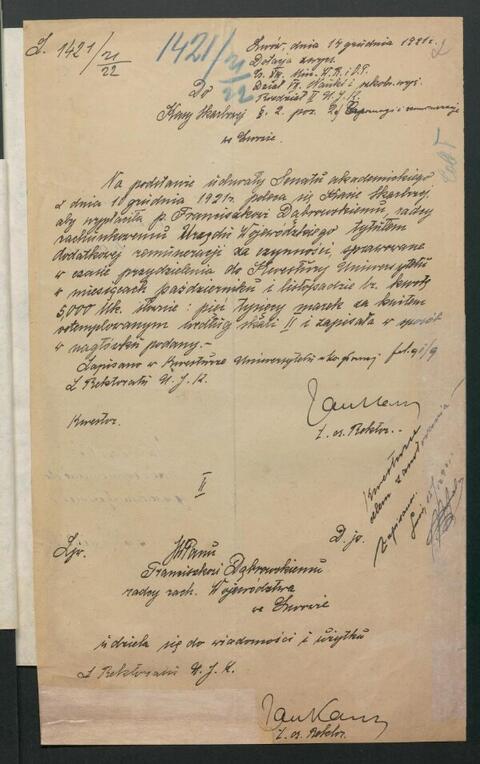 L. 1421/21/22
1421/21/22
Lwów, dnia 14 grudnia 1921 r.
Dotacja zwycz.
Cz. VII. Min. W.R. i O.P.
Dział VI. Nauki i szkoln. wyż.
Rozdział II U.J.K.
Do
Kasy Skarbowej § 2. poz. 2) Zapomogi i remuneracje
we Lwowie
Na podstawie uchwały Senatu akademickiego
z dnia 10 grudnia 1921 r. poleca się Kasie Skarbowej,
aby wypłaciła p. Franciszkowi Dąbrowskiemu, radcy
rachunkowemu Urzędu Wojewódzkiego tytułem
dodatkowej remuneracji za czynności, sprawowane
w czasie przydzielenia do Kwestury Uniwersytetu
w miesiącach październiku i listopadzie br. kwotę
5,000 Mk. słownie: pięć tysięcy marek za kwitem
ostemplowanym według skali II i zapisała w sposób
w nagłówku podany.-
Zapisano w Kwesturze Uniwersytetu
Z Rektoratu U. J. K.
Kwestor.
Jan Kas
Z. os. Rektor.
Kwestura
celem zanotowania!
Zapisano.
II
D. jo.
Ljo.
WPanu
Franciszkowi Dąbrowskiemu
radcy rach. Województwa
we Lwowie
udziela się do wiadomości i użytku
Z Rektoratu U. J. K.
Jan Kas
Z. os. Rektor.